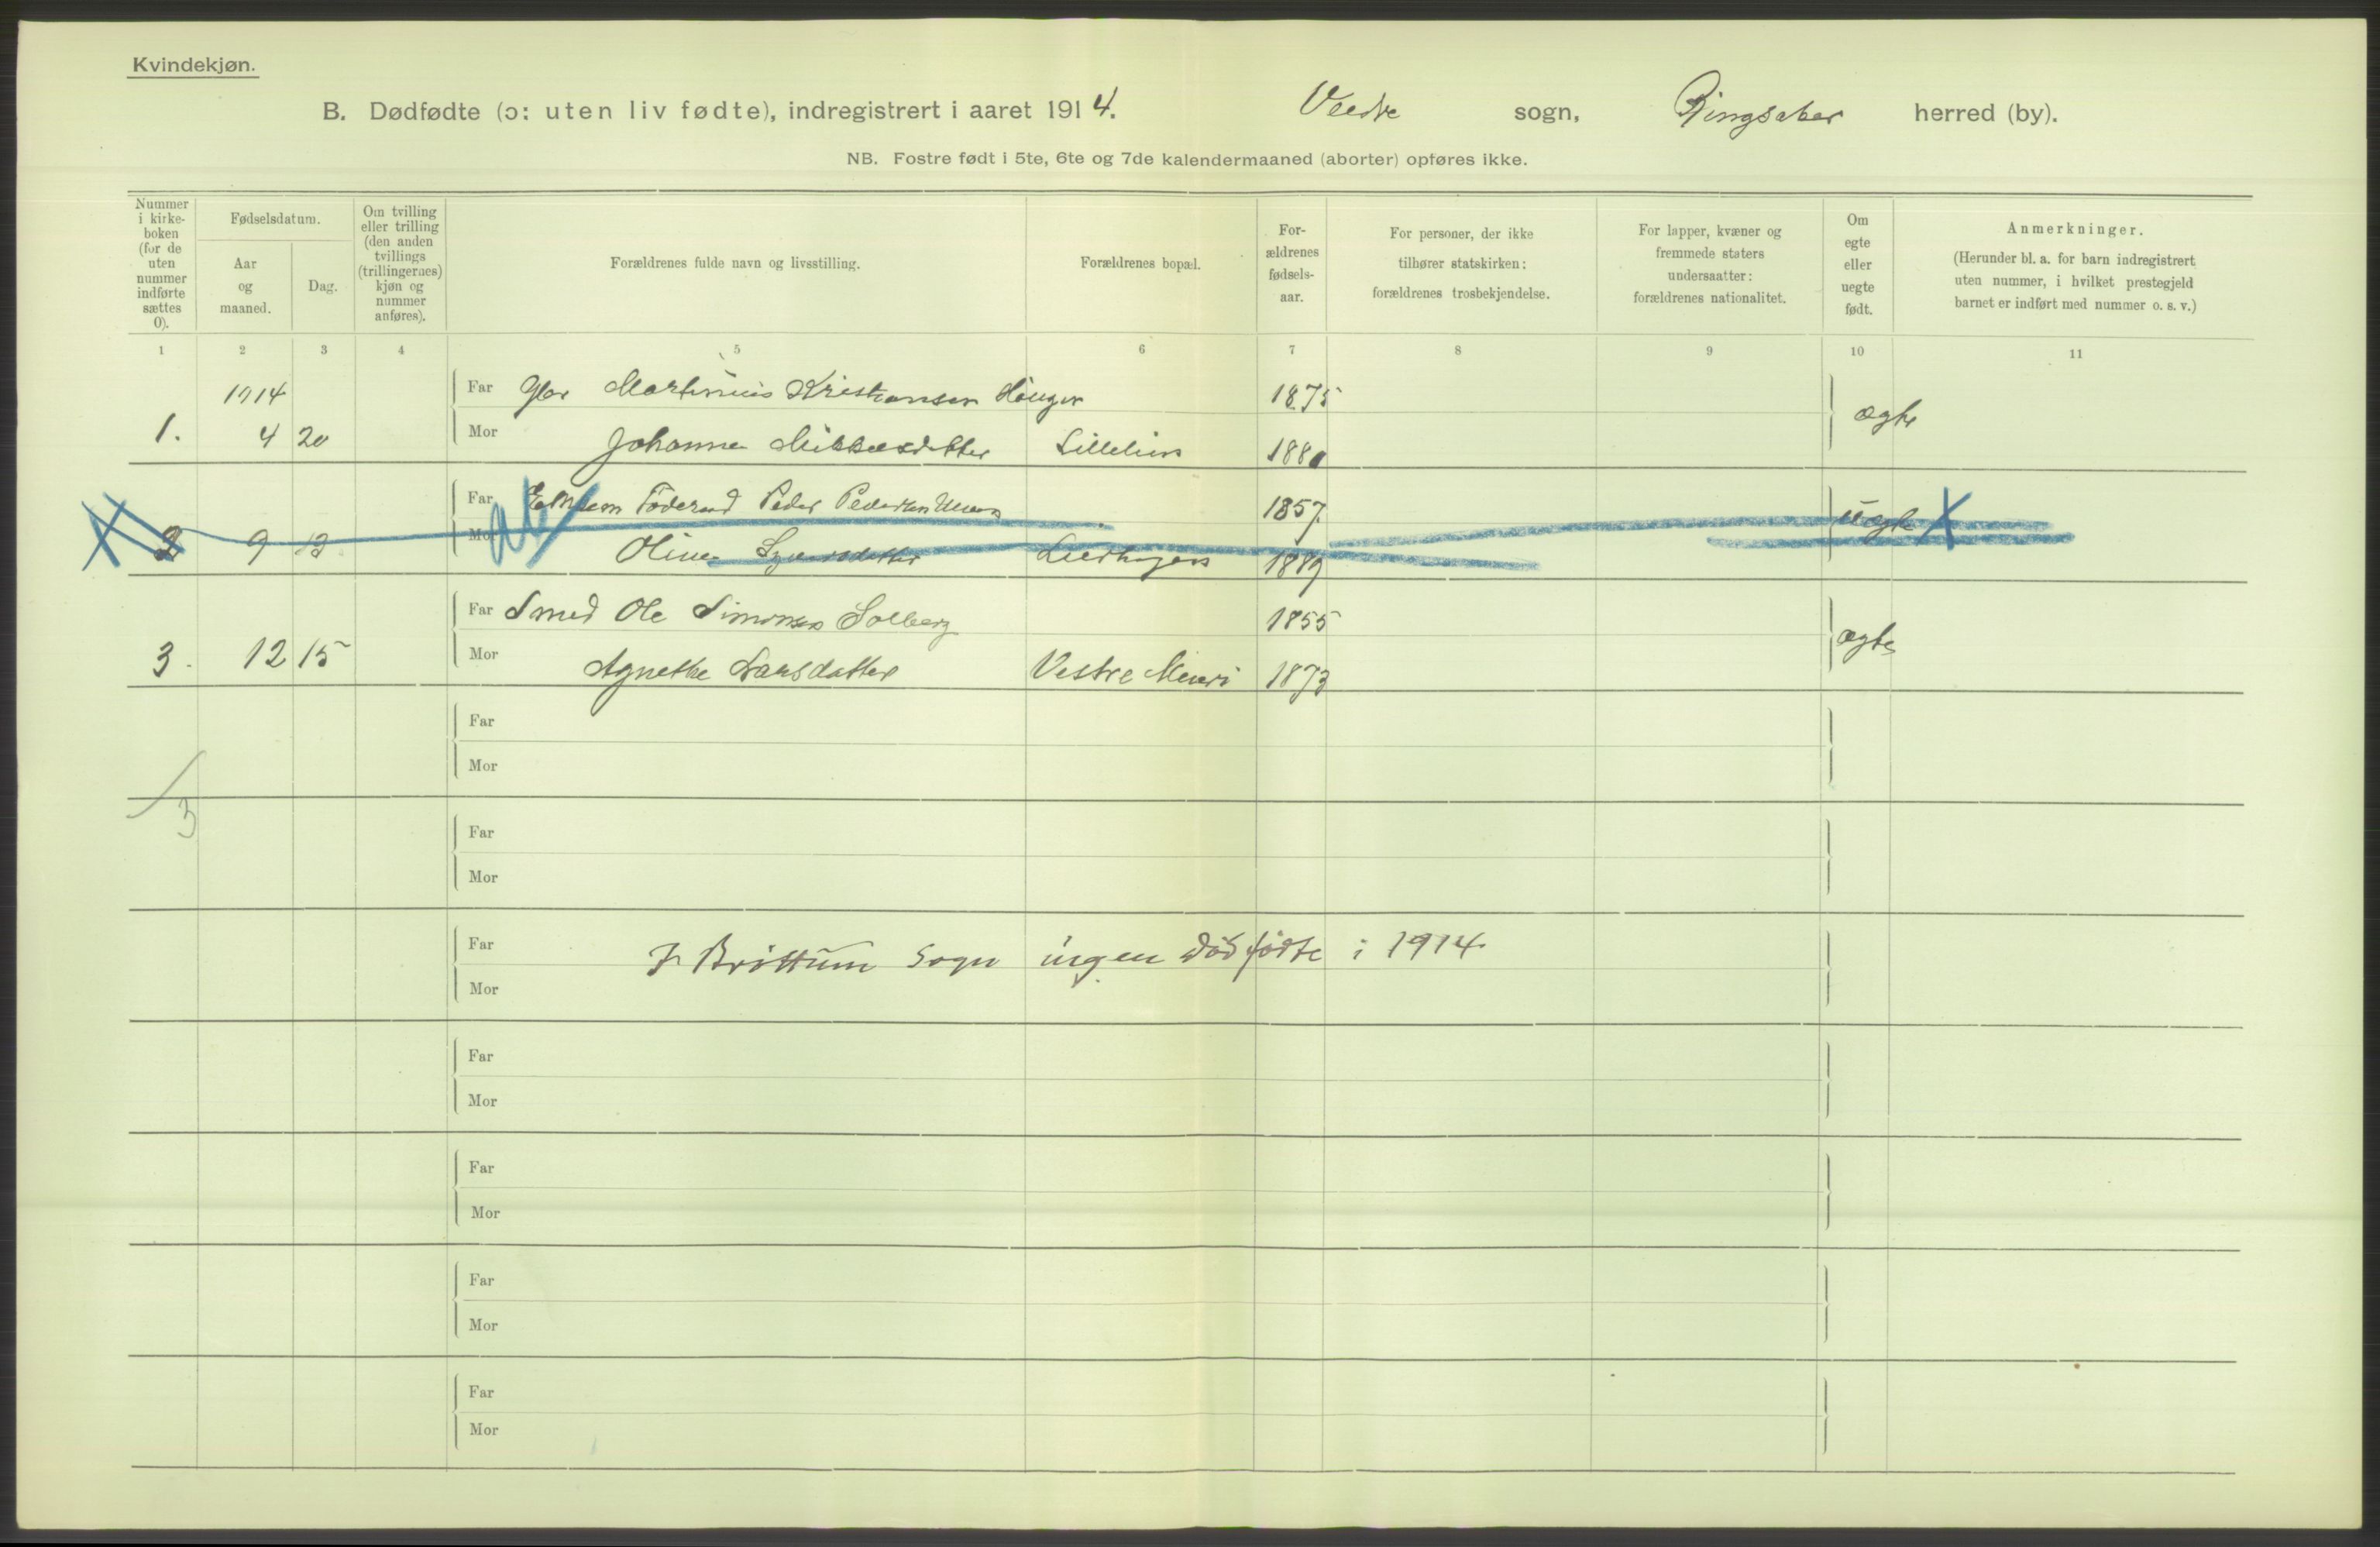 Kvindekjøn.
B. Dødfødte (ɔ: uten liv fødte), indregistrert i aaret 1914. Veldre sogn, Ringsaker herred (by).
NB. Fostre født i 5te, 6te og 7de kalendermaaned (aborter) opføres ikke.
Nummer i kirke-boken (for de uten nummer indførte sættes 0).
Fødselsdatum.
Aar og maaned.
Dag.
Om tvilling eller trilling (den anden tvillings (trillingernes) kjøn og nummer anføres).
Forældrenes fulde navn og livsstilling.
Forældrenes bopæl.
For-ældrenes fødsels-aar.
For personer, der ikke tilhører statskirken: forældrenes trosbekjendelse.
For lapper, kvæner og fremmede staters undersaatter: forældrenes nationalitet.
Om egte eller uegte født.
Anmerkninger.
(Herunder bl. a. for barn indregistrert uten nummer, i hvilket prestegjeld barnet er indført med nummer o. s. v.)
1 2 3 4 5 6 7 8 9 10 11
1914 Far Martinius Kristiansen 1875
1. 4 20 Mor Johanne 1880 ægte
Far Peder Pedersen 1857
2 9 13 Mor Oline 1889 uægte
Far Smed Ole Simonsen Solberg 1855
3. 12 15 Mor Agnethe Larsdatter Vestre 1873 ægte
Far
Mor
3
Far
Mor
Far I Brøttum Sogn ingen dødfødte i 1914
Mor
Far
Mor
Far
Mor
Far
Mor
Far
Mor